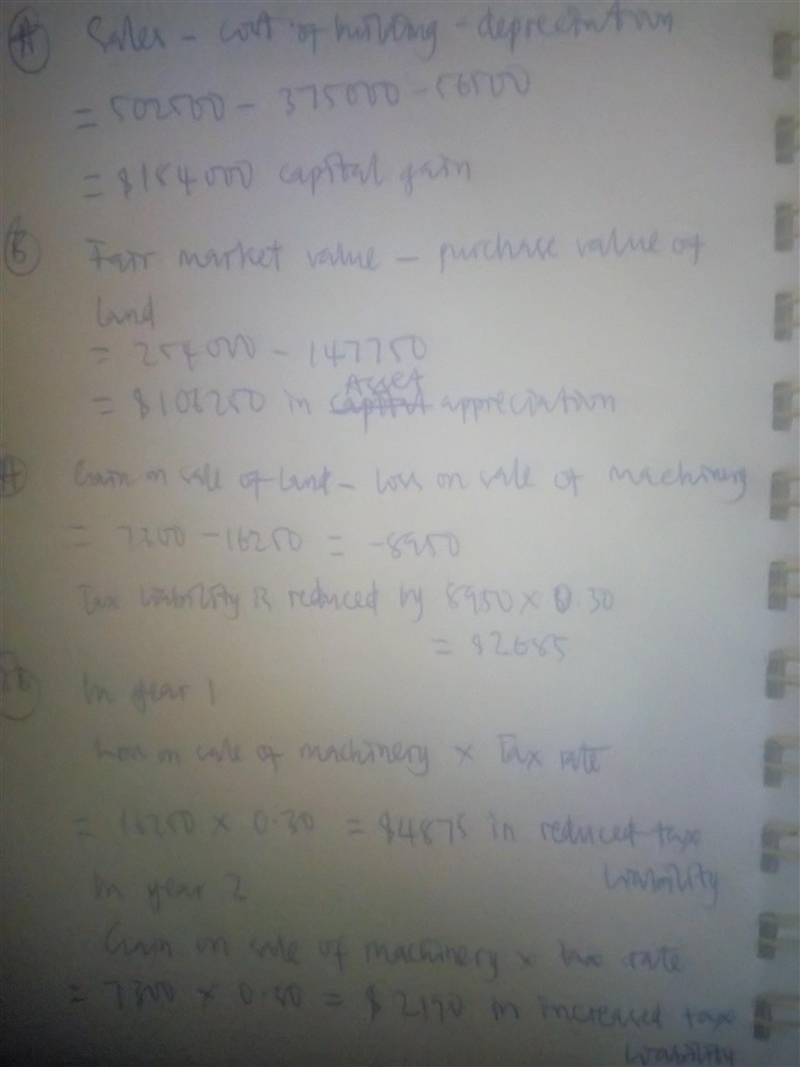 (A) Sales - cost of building - depreciation
= 502500 - 375000 - 56500
= $184000 capital gain
(B) Fair market value - purchase value of
land
= 254000 - 147750
Asset
= $106250 in capital appreciation
A Gain on sale of land - loss on sale of machinery
= 7300 - 16250 = -8950
Tax liability is reduced by 8950 x 0.30
= $2685
In year 1
Loss on sale of machinery x Tax rate
= 16250 x 0.30 = $4875 in reduced tax
liability
In year 2
Gain on sale of machinery x tax rate
= 7300 x 0.30 = $2190 in increased tax
liability